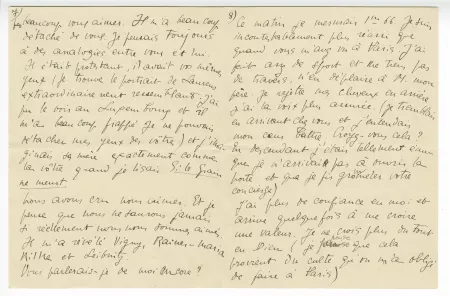 7)
beaucoup vous aimer. Il m'a beaucoup
détaché de vous. Je pensais toujours
à des analogies entre vous et lui.
Il était protestant, il avait vos mêmes
yeux (je trouve le portrait de Laurens
extraordinairement ressemblant. J'ai
pu le voir au Luxembourg et il
m'a beaucoup frappé. Je ne pouvais
détacher mes yeux des vôtres) et j'ima-
ginais sa mère exactement comme
la vôtre quand je lisais Si le Grain
ne meurt.
nous avons cru nous aimer. Et je
pense que nous ne saurons jamais
si réellement nous nous sommes aimés.
Il m'a révélé Vigny, Rainer-Maria
Rilke et Leibnitz.
Vous parlerais-je de moi encore ?
8)
Ce matin je mesurais 1m 66. Je suis
incontestablement plus réussi que
quand vous m'avez vu à Paris. J'ai
fait de sport et ne tiens pas
de travers, n'en déplaise à M. mon
père. Je rejette mes cheveux en arrière
j'ai la voix plus assurée. (Je tremblais
en arrivant chez vous et j'entendais
mon cœur battre. Croyez-vous cela ?
En descendant j'étais tellement ému
que je n'arrivais pas à ouvrir la
porte et que je fis votre
concierge)
J'ai plus de confiance en moi et
arrive quelquefois à me croire
une valeur. Je ne crois plus du tout
en Dieu (je que cela
provient du culte que on m'a obligé
de faire à Paris)